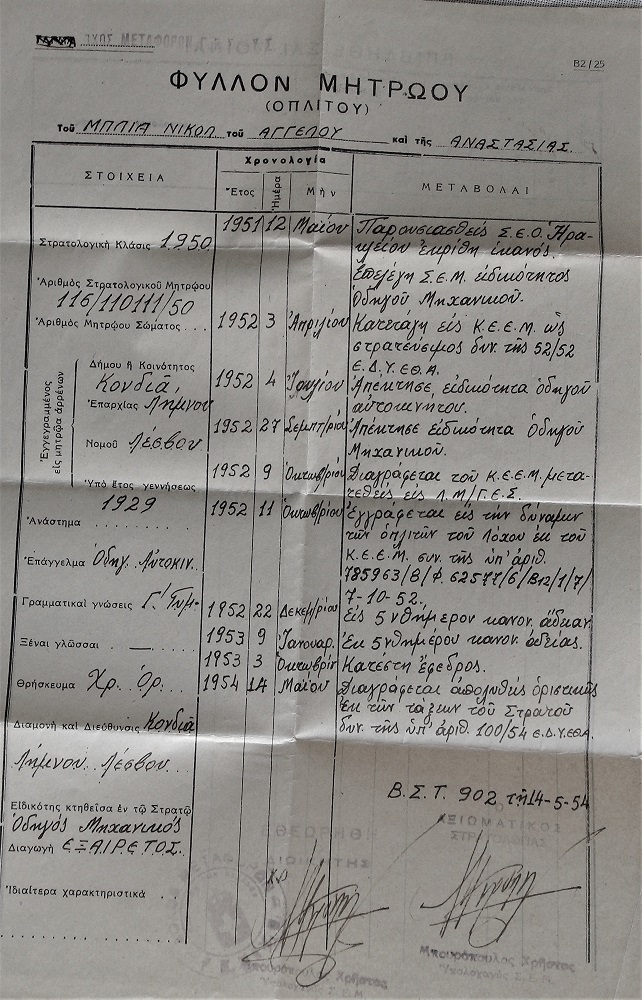 Β2/25
ΦΥΛΛΟΝ ΜΗΤΡΩΟΥ
(ΟΠΛΙΤΟΥ)
Τοῦ ΜΠΛΙΑ ΝΙΚΟΛ τοῦ ΑΓΓΕΛΟΥ καὶ τῆς ΑΝΑΣΤΑΣΙΑΣ
ΣΤΟΙΧΕΙΑ
Χρονολογία
Ἔτος Ἡμέρα Μὴν
ΜΕΤΑΒΟΛΑΙ
Στρατολογικὴ Κλάσις 1950
Ἀριθμὸς Στρατολογικοῦ Μητρώου
116/110111/50
Ἀριθμὸς Μητρώου Σώματος . . .
Ἐγγεγραμμένος
εἰς μητρῷα ἀρρένων
Δήμου ἢ Κοινότητος
Κονδιᾶ,
Ἐπαρχίας Λήμνου
Νομοῦ Λέσβου
Ὑπὸ ἔτος γεννήσεως
1929
Ἀνάστημα . . . . . . . .
Ἐπάγγελμα Ὁδηγ. Αὐτοκιν.
Γραμματικαὶ γνώσεις Γ΄/Γυμ.
Ξέναι γλῶσσαι . . — . . .
Θρήσκευμα Χρ. Ὀρ. . . .
Διαμονὴ καὶ Διεύθυνσις Κονδιᾶ
Λήμνου Λέσβου
Εἰδικότης κτηθεῖσα ἐν τῷ Στρατῷ
Ὁδηγὸς Μηχανικὸς
Διαγωγὴ ΕΞΑΙΡΕΤΟΣ
Ἰδιαίτερα χαρακτηριστικά . . . .
1951 12 Μαΐου Παρουσιασθεὶς Σ.Ε.Ο. Ἡρα-
κλείου ἐκρίθη ἱκανός.
Ἐπελέγη Σ.Ε.Μ. εἰδικότητος
Ὁδηγοῦ Μηχανικοῦ.
1952 3 Ἀπριλίου Κατετάγη εἰς Κ.Ε.Ε.Μ. ὡς
στρατεύσιμος δυν. τῆς 52/52
Ε.Δ.Υ.ΕΘ.Α.
1952 4 Ἰουλίου Ἀπέκτησε εἰδικότητα ὁδηγοῦ
αὐτοκινήτου.
1952 27 Σεμπτ/ρίου Ἀπέκτησε εἰδικότητα Ὁδηγοῦ
Μηχανικοῦ.
1952 9 Ὀκτωβρίου Διαγράφεται τοῦ Κ.Ε.Ε.Μ. μετα-
τεθεὶς εἰς Λ.Μ/Γ.Ε.Σ.
1952 11 Ὀκτωβ/ρίου Ἐγγράφεται εἰς τὴν δύναμιν
τῶν ὁπλιτῶν τοῦ Λόχου ἐκ τοῦ
Κ.Ε.Ε.Μ. συν. τῆς ὑπ' ἀριθ.
785963/8/Φ. 62577/6/Β12/1/7/
7-10-52.
1952 22 Δεκεμ/ρίου Εἰς 5νθήμερον κανον. ἄδειαν
1953 9 Ἰανουαρ. Ἐκ 5νθημέρου κανον. ἀδείας.
1953 3 Ὀκτωβρίου Κατέστη ἔφεδρος.
1954 14 Μαΐου Διαγράφεται ἀπολυθεὶς ὁριστικῶς
ἐκ τῶν τάξεων τοῦ Στρατοῦ
δυν. τῆς ὑπ' ἀριθ. 100/54 Ε.Δ.Υ.ΕΘΑ.
Β.Σ.Τ. 902 τῇ 14-5-54
ΑΞΙΩΜΑΤΙΚΟΣ
ΣΤΡΑΤΟΛΟΓΙΑΣ
ΕΘΕΩΡΗΘΗ
ΔΙΟΙΚΗΤΗΣ
Μπουρόπουλος Χρῆστος
Μπουρόπουλος Χρῆστος